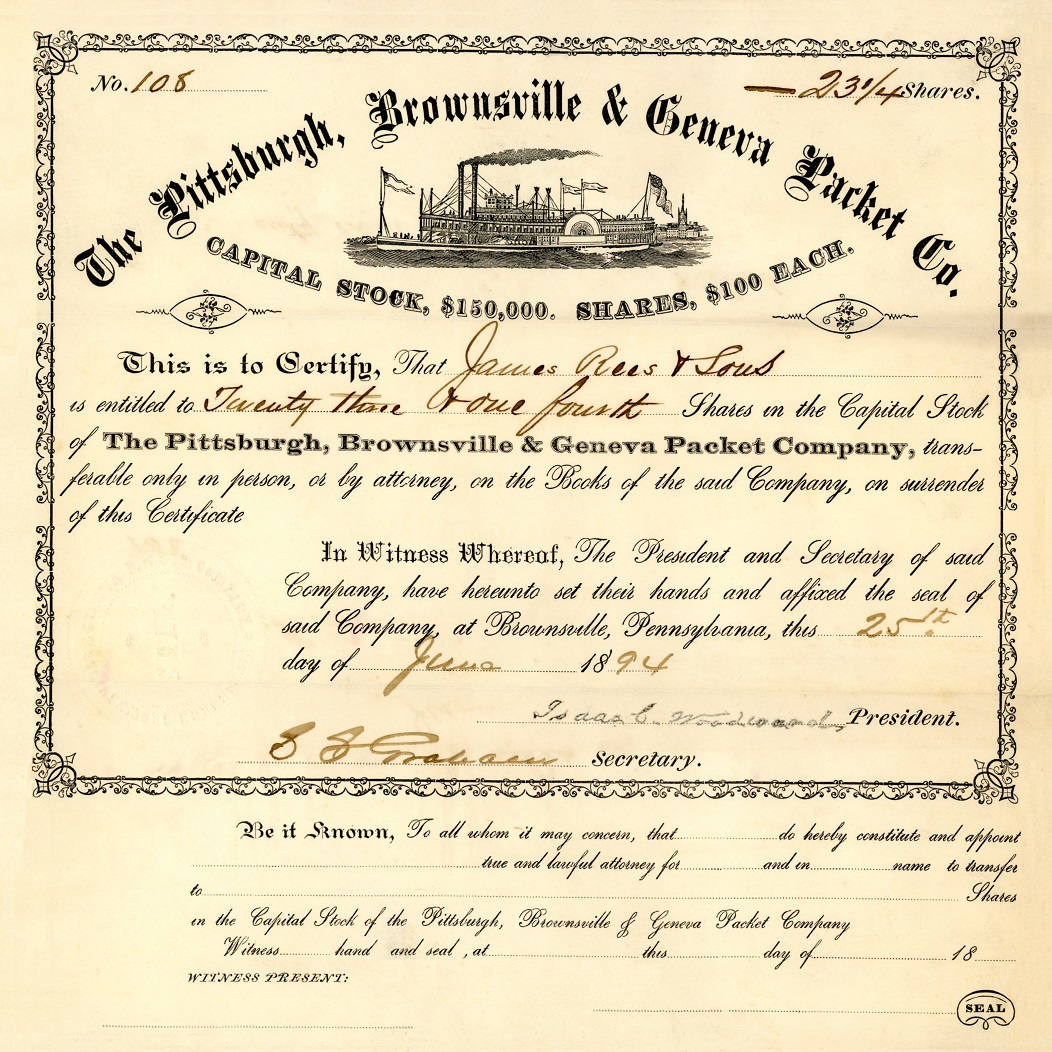 No. 108 — 23 1/4 Shares.
The Pittsburgh, Brownsville & Geneva Packet Co.
CAPITAL STOCK, $150,000. SHARES, $100 EACH.
This is to Certify, That James Rees & Sons
is entitled to Twenty three & one fourth Shares in the Capital Stock
of The Pittsburgh, Brownsville & Geneva Packet Company, trans-
ferable only in person, or by attorney, on the Books of the said Company, on surrender
of this Certificate
In Witness Whereof, The President and Secretary of said
Company, have hereunto set their hands and affixed the seal of
said Company, at Brownsville, Pennsylvania, this 25th
day of June 1894
Isaac C. Woodward, President.
S S Graham Secretary.
Be it Known, To all whom it may concern, that do hereby constitute and appoint
true and lawful attorney for and in name to transfer
to Shares
in the Capital Stock of the Pittsburgh, Brownsville & Geneva Packet Company
Witness hand and seal, at this day of 18
WITNESS PRESENT:
SEAL